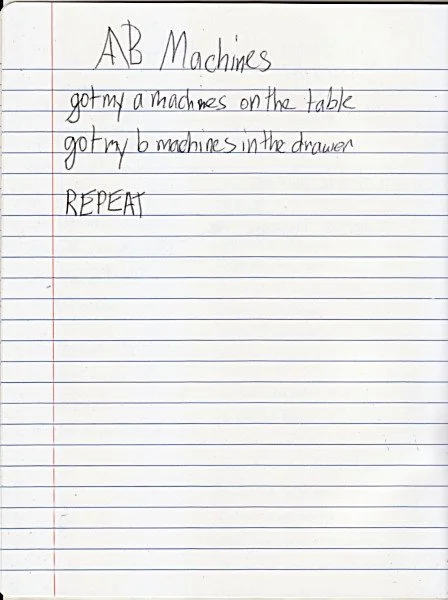 A\B Machines
got my a machines on the table
got my b machines in the drawer
REPEAT